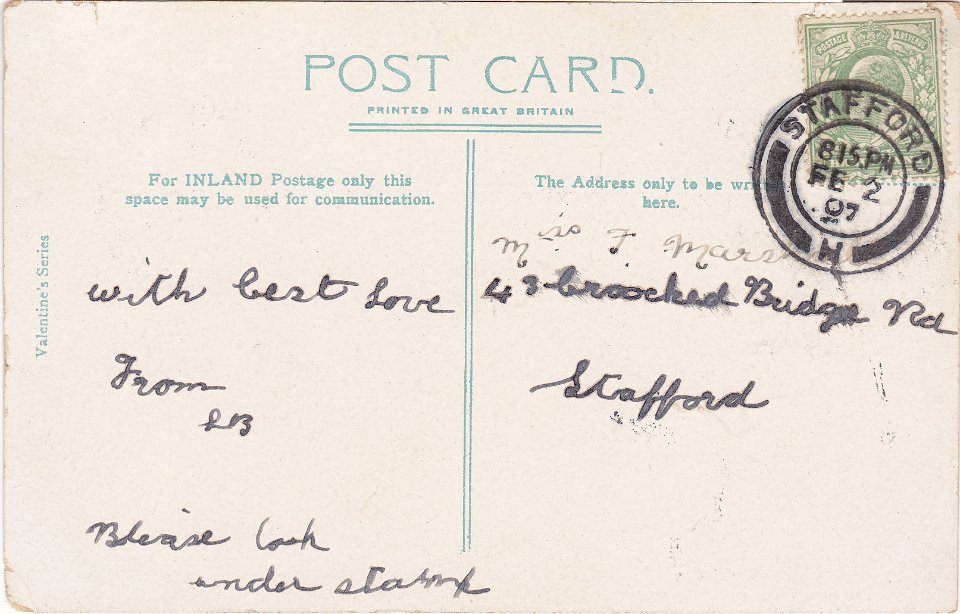 POST CARD.
PRINTED IN GREAT BRITAIN
For INLAND Postage only this
space may be used for communication.
The Address only to be
here.
Valentine's Series
POSTAGE & REVENUE
STAFFORD
8 15 PM
FE 2
07
N
with best love
From
Miss F
43 Croocked Bridge Rd
Stafford
Please look
under stamp